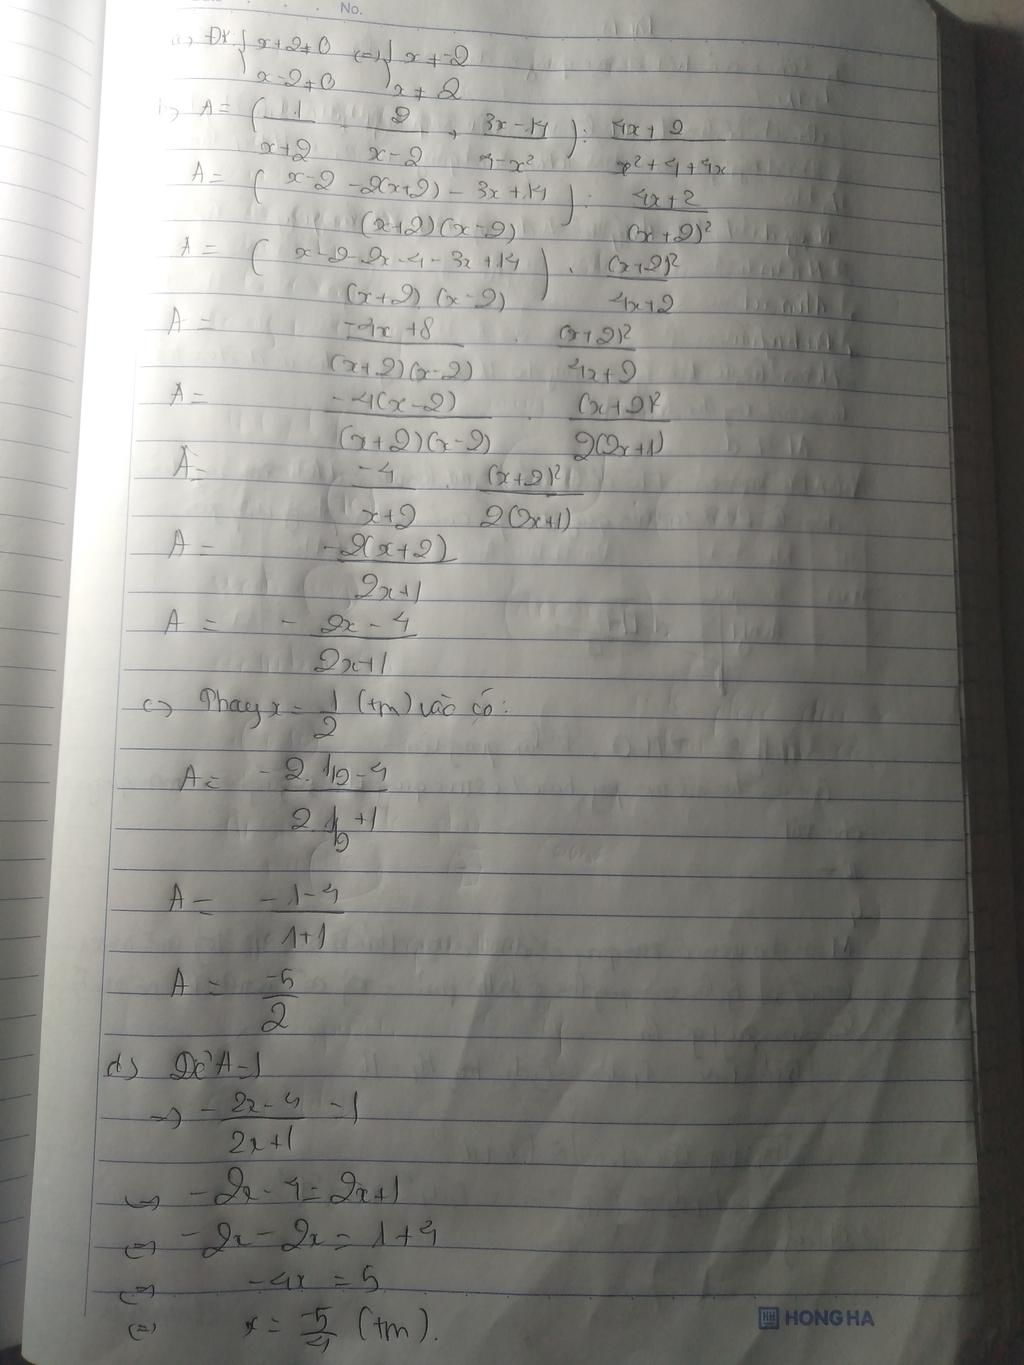 No.
a) ĐK { x+2≠0 <=> { x≠-2
x-2≠0 x≠2
b) A = ( 1/(x+2) - 2/(x-2) + (3x-14)/(4-x²) ) : (4x+2)/(x²+4+4x)
A = ( (x-2-2(x+2)-3x+14)/((x+2)(x-2)) ) : (4x+2)/(x+2)²
A = ( (x-2-2x-4-3x+14)/((x+2)(x-2)) ) . (x+2)²/(4x+2)
A = (-4x+8)/((x+2)(x-2)) . (x+2)²/(4x+2)
A = -4(x-2)/((x+2)(x-2)) . (x+2)²/(2(2x+1))
A = -4/(x+2) . (x+2)²/(2(2x+1))
A = -2(x+2)/(2x+1)
A = (-2x-4)/(2x+1)
c) Thay x = 1/2 (tm) vào có:
A = (-2.1/2-4)/(2.1/2+1)
A = (-1-4)/(1+1)
A = -5/2
d) Để A=1
=> (-2x-4)/(2x+1) = 1
<=> -2x-4=2x+1
<=> -2x-2x=1+4
<=> -4x=5
<=> x = -5/4 (tm).
HONG HA